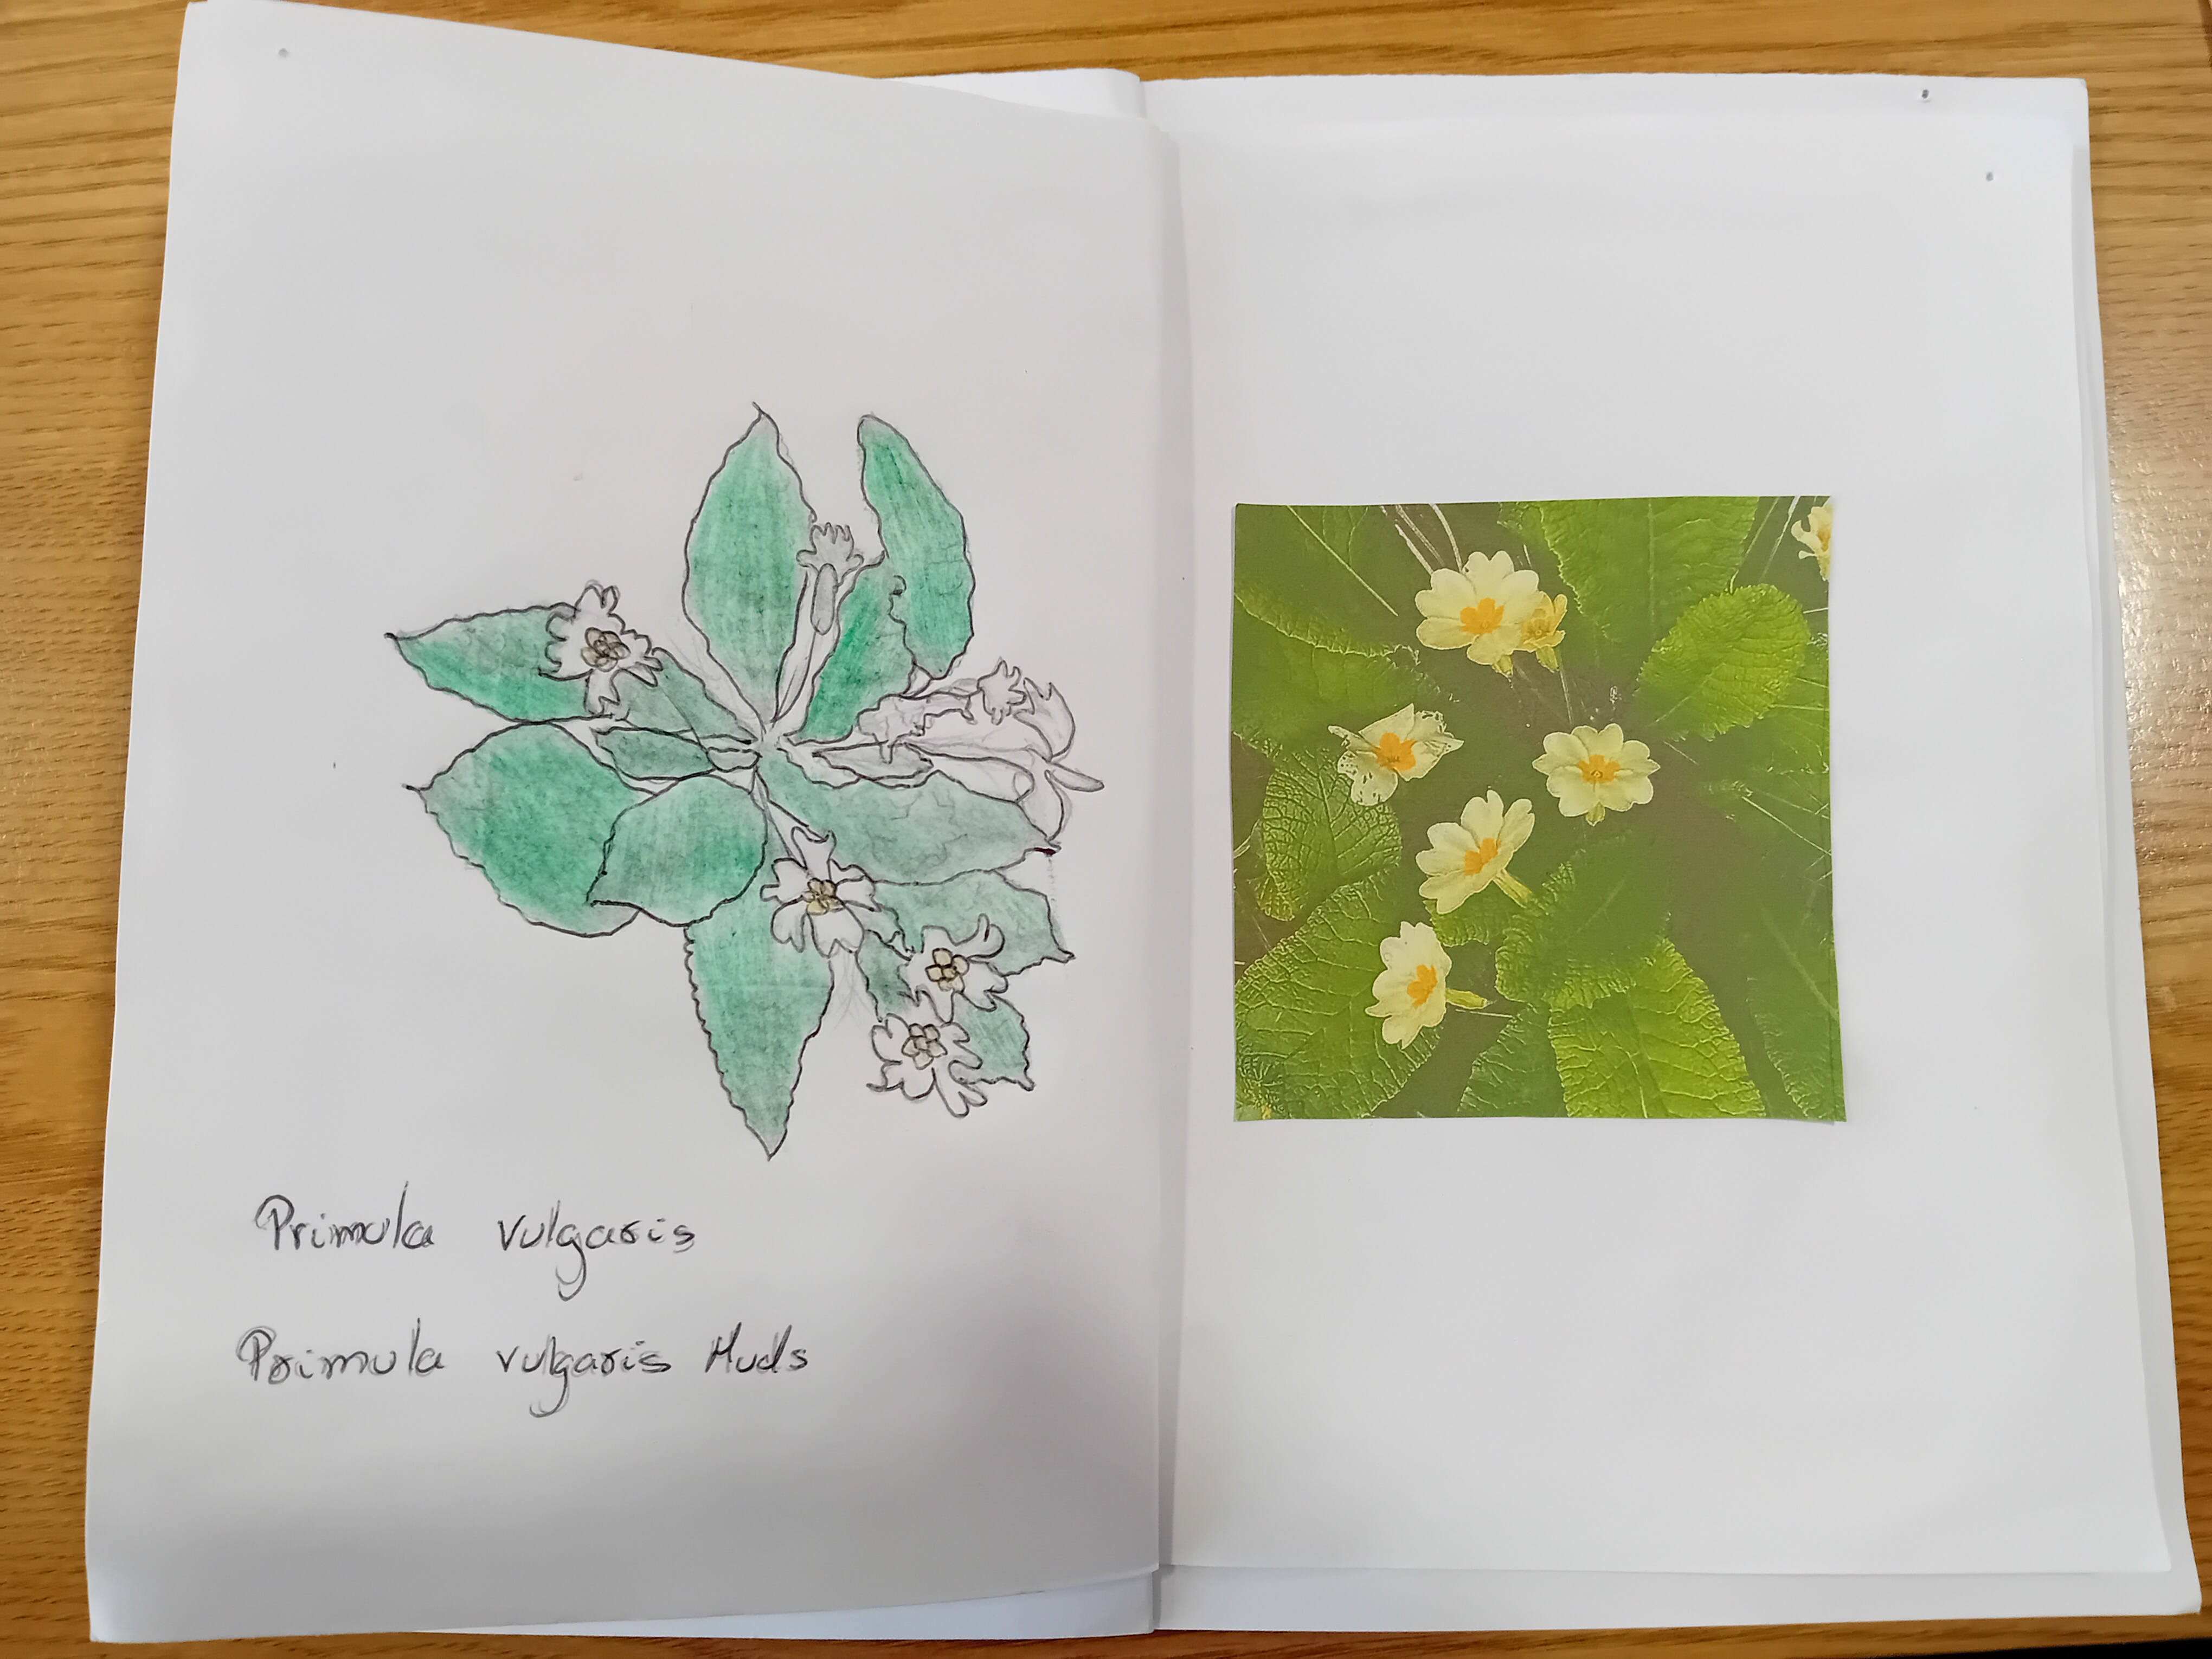 Primula vulgaris
Primula vulgaris Huds